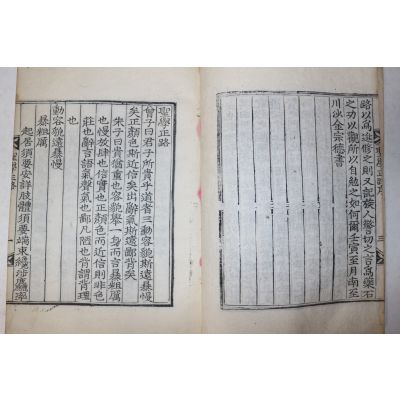 路以爲進修之則又記族人警切之言爲藥石
之功以觀所以自勉之如何爾壬寅至月南至
川沙金宗德書
聖學正路
曾子曰君子所貴乎道者三動容貌斯遠暴慢
矣正顔色斯近信矣出辭氣斯遠鄙背矣
朱子曰貴猶重也容貌擧一身而言暴粗厲
也慢放肆也信實也正顔色而近信則非色
莊也辭言語氣聲氣也鄙凡陋也背謂背理
也
動容貌遠暴慢
暴粗厲
起居須要安詳肢體須要端束